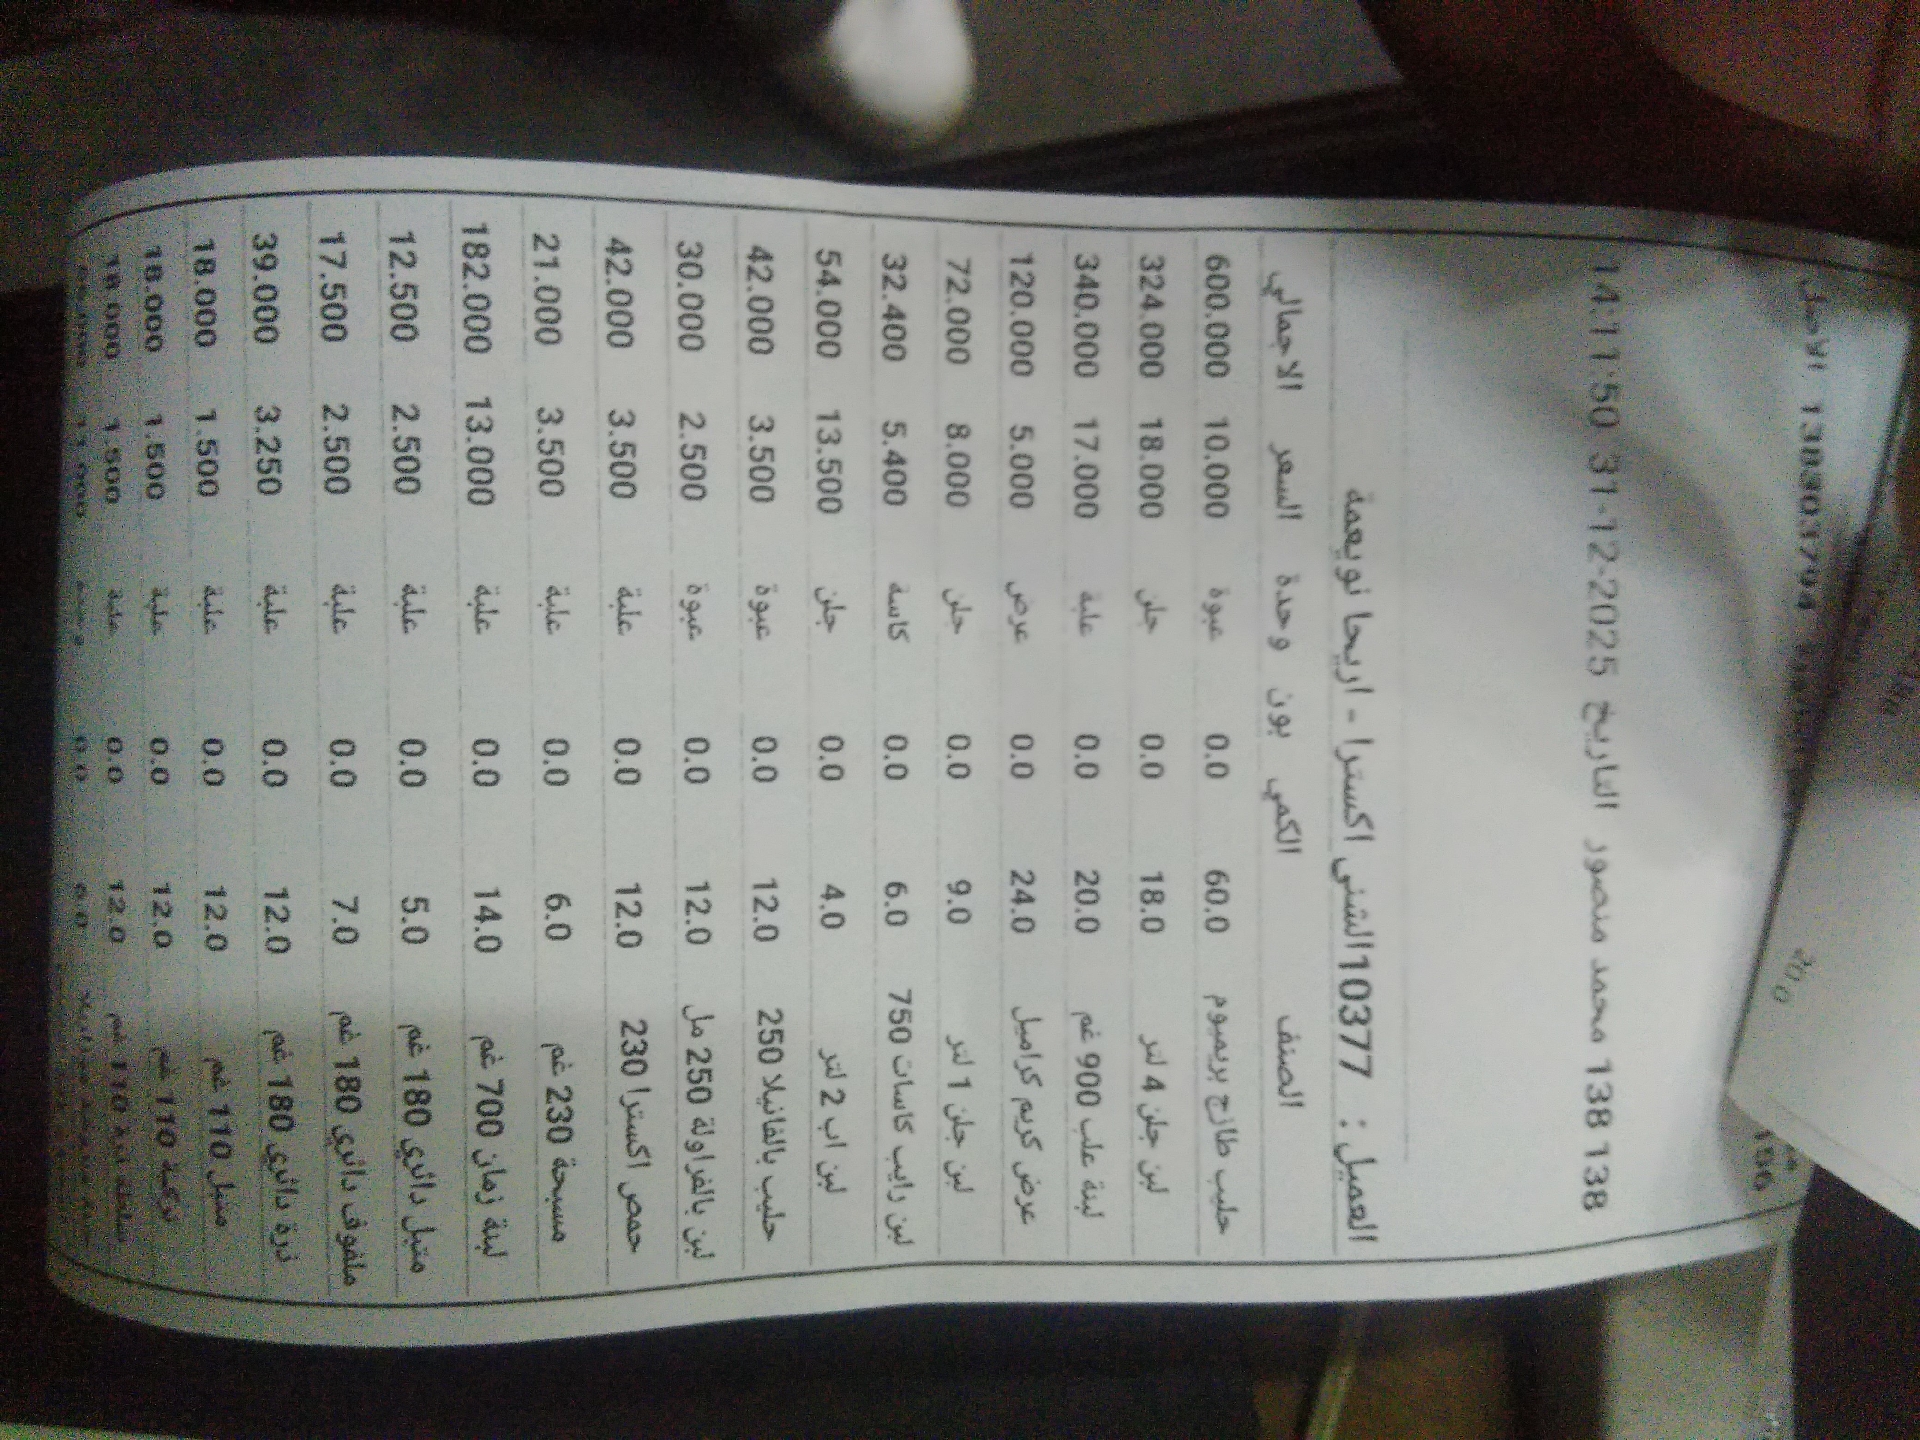 الاصل
138 138 محمد منصور التاريخ 2025-12-31 14:11:50
العميل : 10377الشني اكسترا - اريحا نويعمة
الصنف الكمي بون وحدة السعر الاجمالي
حليب طازج بريميوم 60.0 0.0 عبوة 10.000 600.000
لبن جلن 4 لتر 18.0 0.0 جلن 18.000 324.000
لبنة علب 900 غم 20.0 0.0 علبة 17.000 340.000
عرض كريم كراميل 24.0 0.0 عرض 5.000 120.000
لبن جلن 1 لتر 9.0 0.0 جلن 8.000 72.000
لبن رايب كاسات 750 6.0 0.0 كاسة 5.400 32.400
لبن اب 2 لتر 4.0 0.0 جلن 13.500 54.000
حليب بالفانيلا 250 12.0 0.0 عبوة 3.500 42.000
لبن بالفراولة 250 مل 12.0 0.0 عبوة 2.500 30.000
حمص اكسترا 230 12.0 0.0 علبة 3.500 42.000
مسبحة 230 غم 6.0 0.0 علبة 3.500 21.000
لبنة زمان 700 غم 14.0 0.0 علبة 13.000 182.000
متبل دائري 180 غم 5.0 0.0 علبة 2.500 12.500
ملفوف دائري 180 غم 7.0 0.0 علبة 2.500 17.500
ذرة دائري 180 غم 12.0 0.0 علبة 3.250 39.000
متبل 110 غم 12.0 0.0 علبة 1.500 18.000
تركية 110 غم 12.0 0.0 علبة 1.500 18.000
110 غم 12.0 0.0 علبة 1.500 18.000